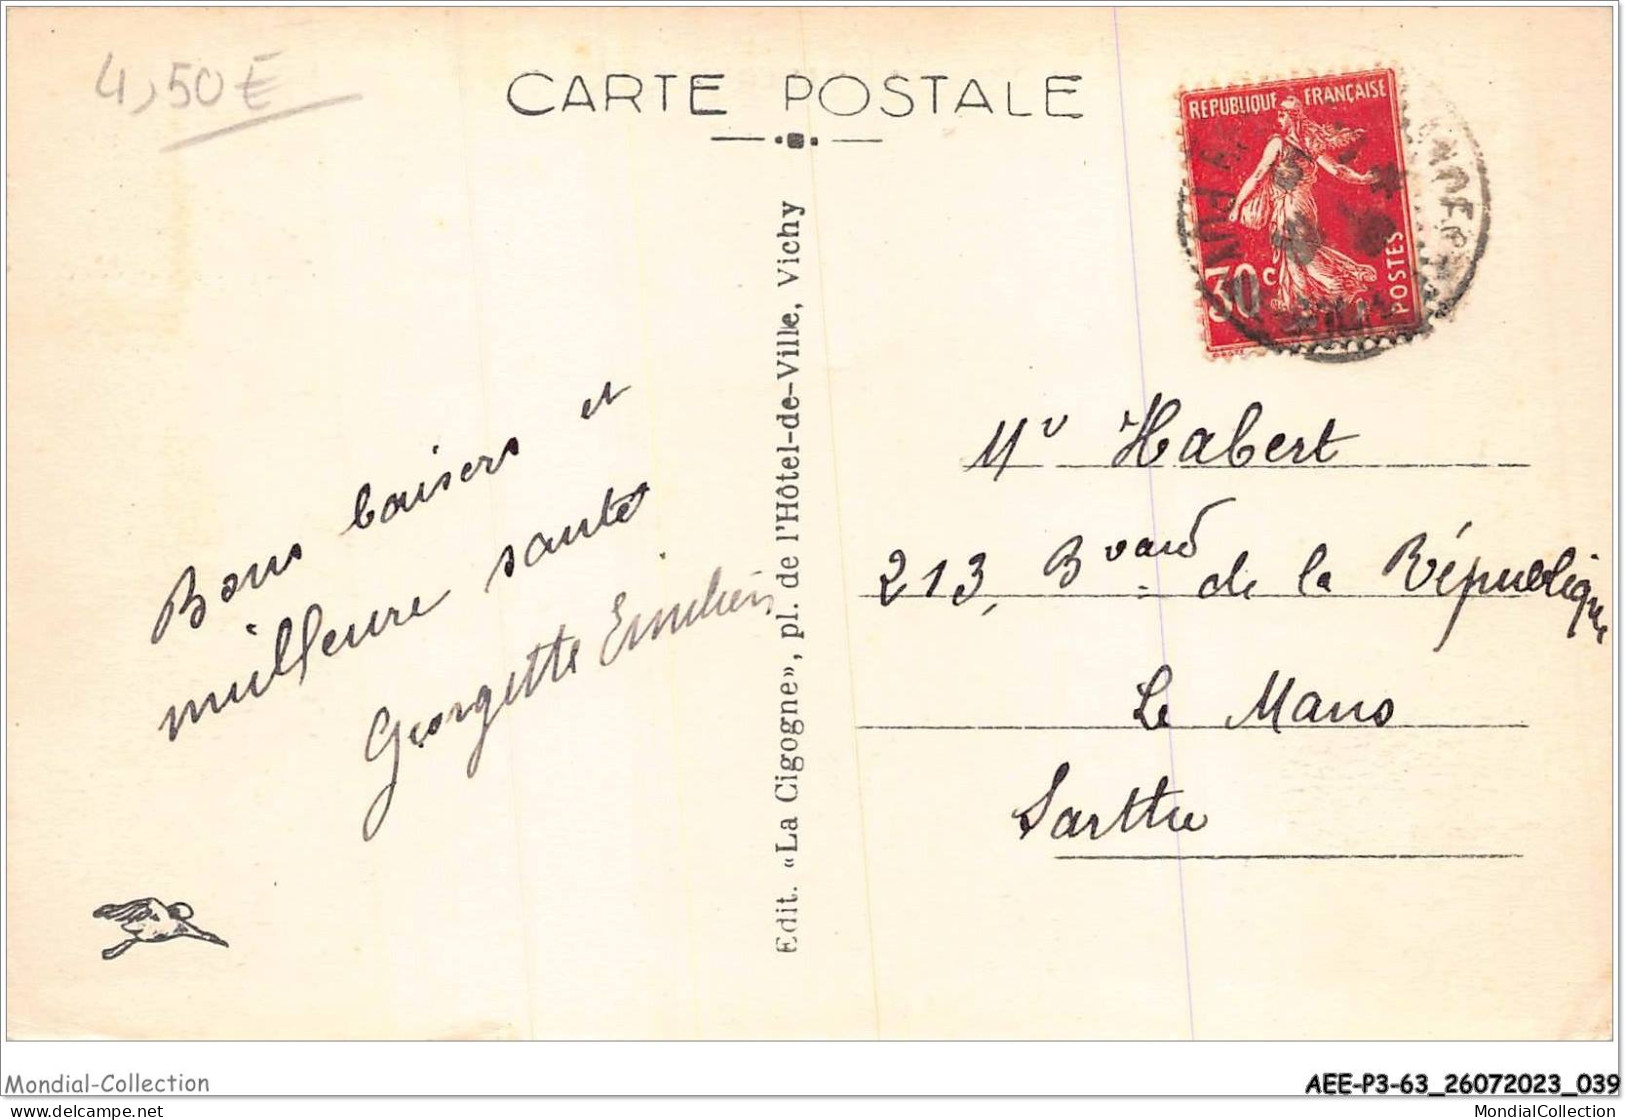 4,50€
CARTE POSTALE
REPUBLIQUE FRANÇAISE
30c
POSTES
Edit. «La Cigogne», pl. de l'Hôtel-de-Ville, Vichy
Bons baisers et
meilleure santé
Georgette Emilien
Mr Habert
213, Bvard de la République
Le Mans
Sarthe
Mondial-Collection
AEE-P3-63_26072023_039
delcampe.net
MondialCollection